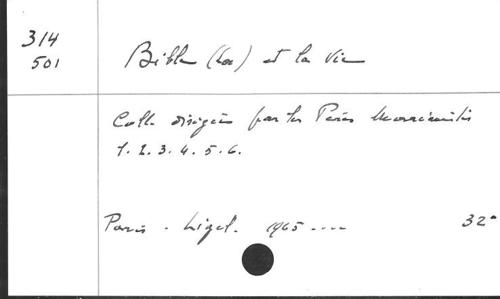 314
501
Bible (La) et la Vie
Coll. dirigée par les Pères
1. 2. 3. 4. 5. 6.
Paris - Ligel. 1965 ----
32°